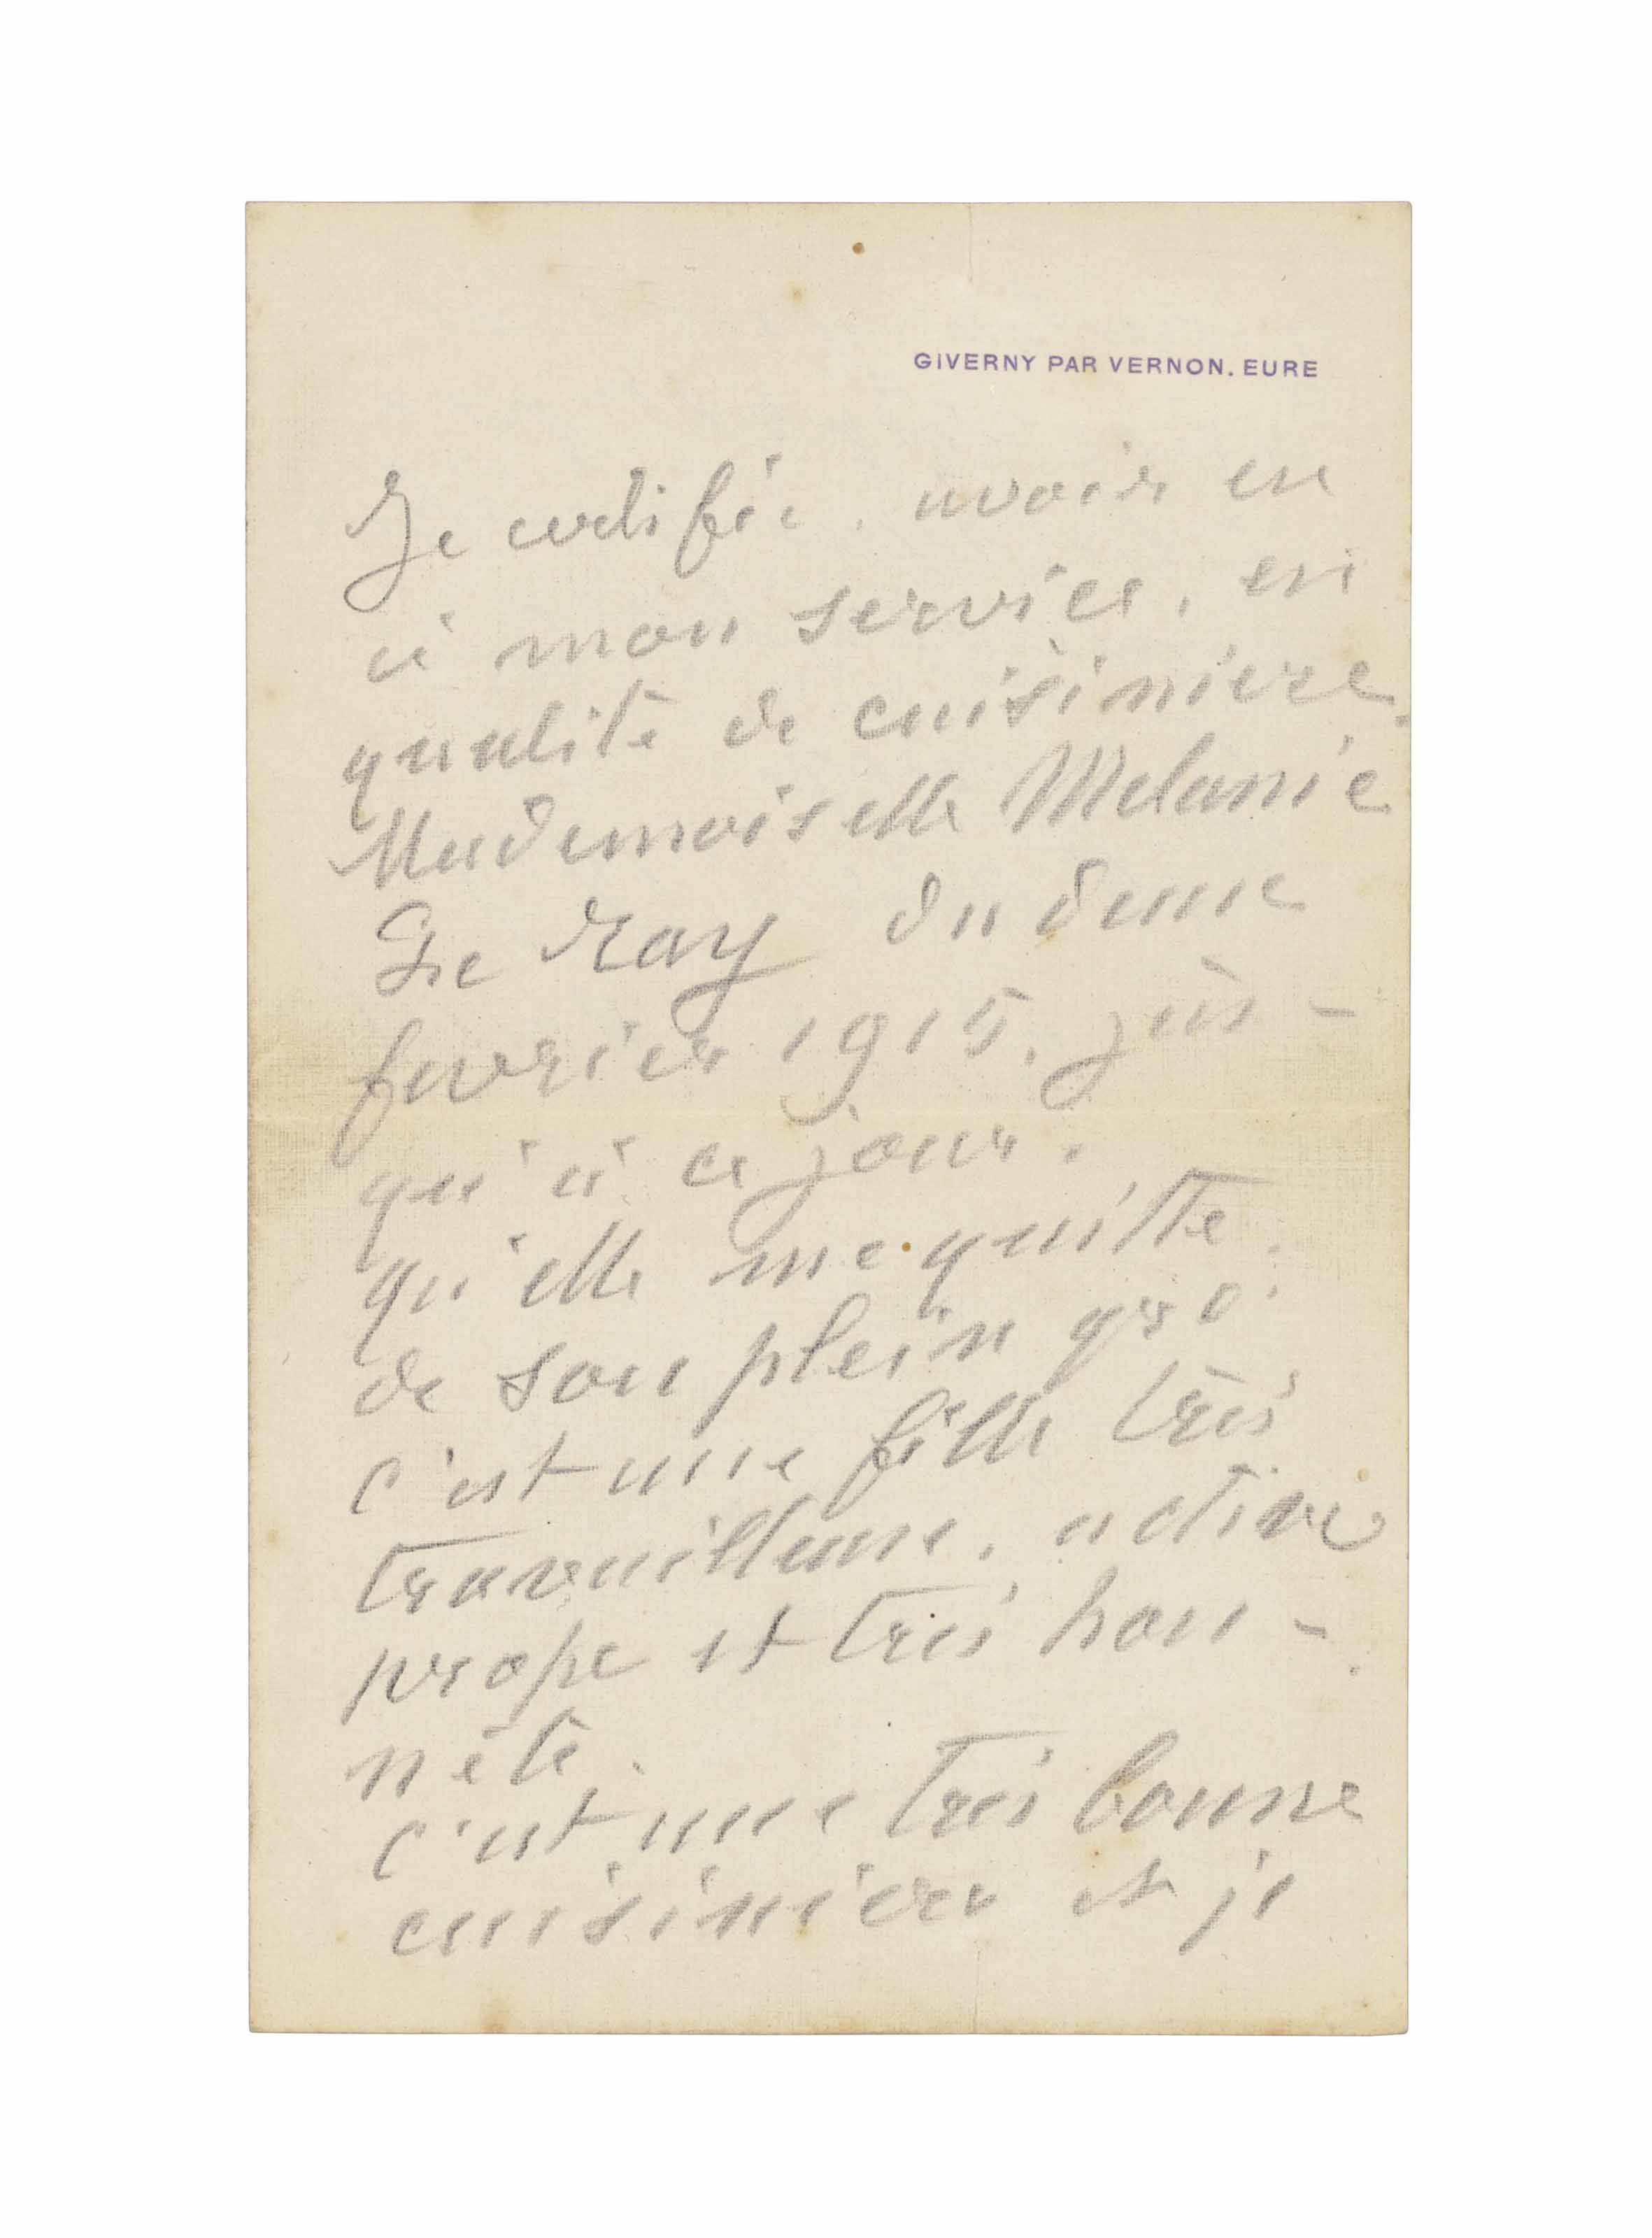 GIVERNY PAR VERNON. EURE
Je certifie, avoir eu
à mon service, en
qualité de cuisinière,
Mademoiselle Melanie
Le Ray du deux
fevrier 1915, jus-
qu'à ce jour.
qu'elle me quitte
de son plein gré.
c'est une fille très
travailleuse, active
propre et très hon-
nête.
c'est une très bonne
cuisinière et je